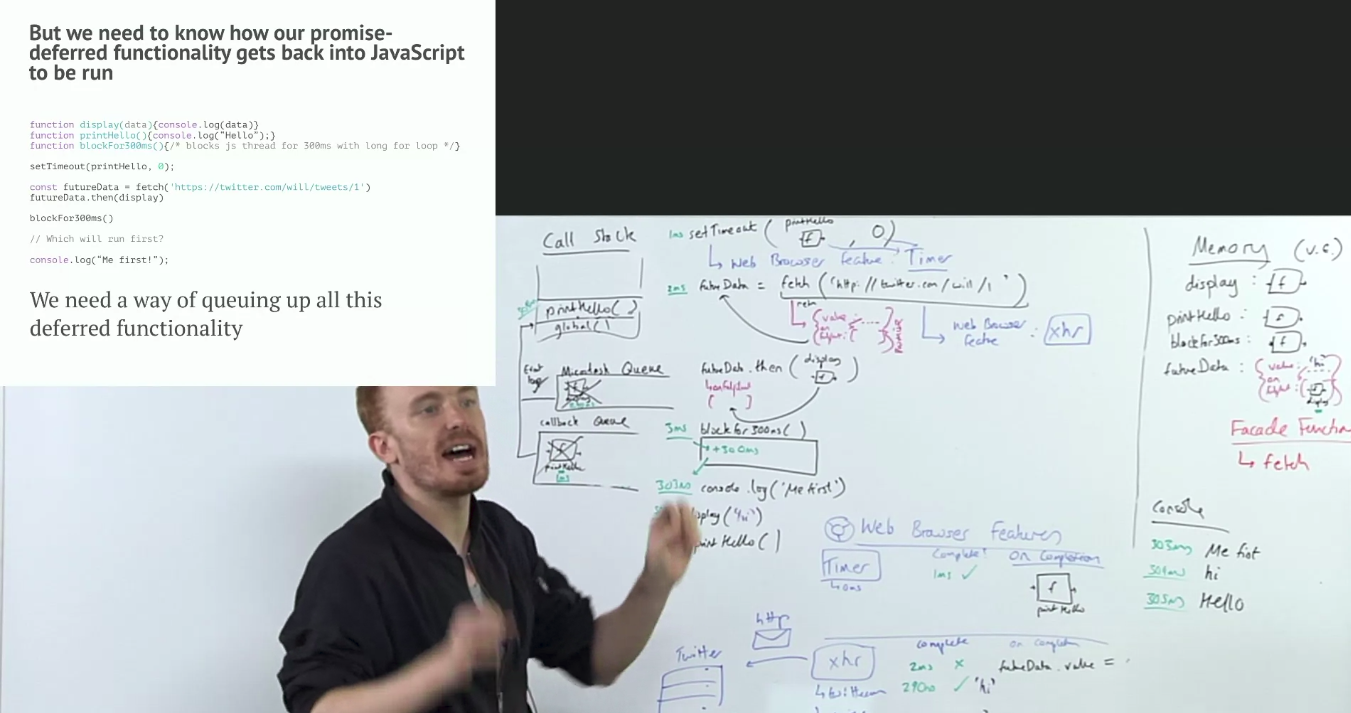 But we need to know how our promise-
deferred functionality gets back into JavaScript
to be run
function display(data){console.log(data)}
function printHello(){console.log("Hello");}
function blockFor300ms(){/* blocks js thread for 300ms with long for loop */}
setTimeout(printHello, 0);
const futureData = fetch('https://twitter.com/will/tweets/1')
futureData.then(display)
blockFor300ms()
// Which will run first?
console.log("Me first!");
We need a way of queuing up all this
deferred functionality
Call Stack
printHello( )
global( )
Microtask Queue
callback Queue
f
printHello
1ms
1ms setTimeout ( printHello f , 0 )
Web Browser Feature : Timer
2ms futureData = fetch ( 'http://twitter.com/will/1 ' )
value :
Web Browser
Feature : xhr
futureData.then ( display f )
3ms blockfor300ms( )
+300ms
303ms console.log('Me first')
display('hi')
printHello( )
Web Browser Features
Timer
0ms
Complete?
1ms ✓
On Completion
f
printHello
http
Twitter
xhr
complete
2ms x
290ms ✓ 'hi'
on completion
futureData.value =
Memory (v.e.)
display : f
printHello : f
blockfor300ms : f
futureData : { value : 'hi'
display
Facade Functio
↳ fetch
Console
303ms Me first
304ms hi
305ms Hello